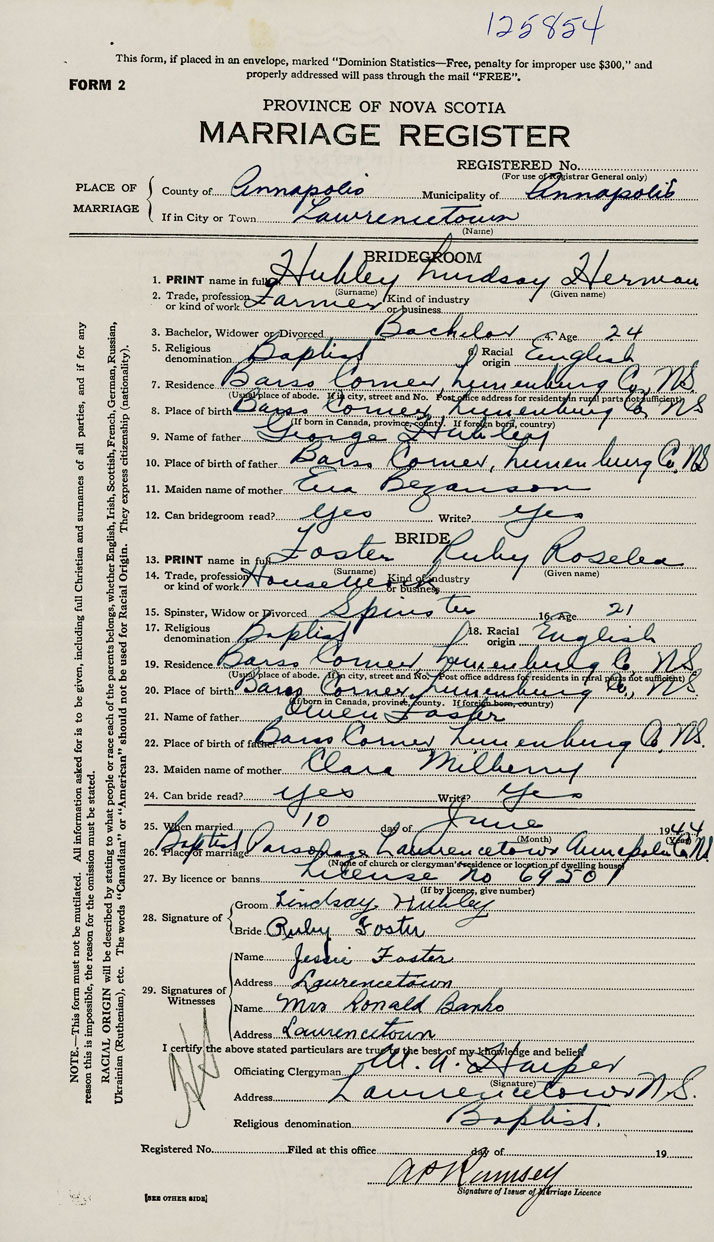 125854
This form, if placed in an envelope, marked "Dominion Statistics—Free, penalty for improper use $300," and
properly addressed will pass through the mail "FREE".
FORM 2
PROVINCE OF NOVA SCOTIA
MARRIAGE REGISTER
REGISTERED No.
(For use of Registrar General only)
PLACE OF MARRIAGE
County of Annapolis Municipality of Annapolis
If in City or Town Lawrencetown
(Name)
BRIDEGROOM
1. PRINT name in full Hubley Lindsay Herman
(Surname) (Given name)
2. Trade, profession or kind of work Farmer Kind of industry or business
3. Bachelor, Widower or Divorced Bachelor 4. Age 24
5. Religious denomination Baptist 6. Racial origin English
7. Residence Barss Corner, Lunenburg Co, NS
(Usual place of abode. If in city, street and No. Post office address for residents in rural parts not sufficient)
8. Place of birth Barss Corner, Lunenburg Co, NS
(If born in Canada, province, county. If foreign born, country)
9. Name of father George Hubley
10. Place of birth of father Barss Corner, Lunenburg Co, NS
11. Maiden name of mother Eva Bezanson
12. Can bridegroom read? Yes Write? Yes
BRIDE
13. PRINT name in full Foster Ruby Roselea
(Surname) (Given name)
14. Trade, profession or kind of work Housework Kind of industry or business
15. Spinster, Widow or Divorced Spinster 16. Age 21
17. Religious denomination Baptist 18. Racial origin English
19. Residence Barss Corner Lunenburg Co NS
(Usual place of abode. If in city, street and No. Post office address for residents in rural parts not sufficient)
20. Place of birth Barss Corner, Lunenburg Co, NS.
(If born in Canada, province, county. If foreign born, country)
21. Name of father Owen Foster
22. Place of birth of father Barss Corner, Lunenburg Co. NS.
23. Maiden name of mother Clara Milberry
24. Can bride read? Yes Write? Yes
25. When married 10 day of June 1944
(Month) (Year)
26. Place of marriage Baptist Parsonage Lawrencetown Annapolis Co NS
(Name of church or clergyman's residence or location of dwelling house)
27. By licence or banns License No 69501
(If by licence, give number)
28. Signature of
Groom Lindsay Hubley
Bride Ruby Foster
29. Signatures of Witnesses
Name Jessie Foster
Address Lawrencetown
Name Mrs Ronald Banks
Address Lawrencetown
I certify the above stated particulars are true to the best of my knowledge and belief
Officiating Clergyman M. A. Harper
(Signature)
Address Lawrencetown N.S.
Religious denomination Baptist.
Registered No. Filed at this office day of 19
Ramsey
Signature of Issuer of Marriage Licence
[SEE OTHER SIDE]
NOTE.—This form must not be mutilated. All information asked for is to be given, including full Christian and surnames of all parties, and if for any
reason this is impossible, the reason for the omission must be stated.
RACIAL ORIGIN will be described by stating to what people or race each of the parents belongs, whether English, Irish, Scottish, French, German, Russian,
Ukrainian (Ruthenian), etc. The words "Canadian" or "American" should not be used for Racial Origin. They express citizenship (nationality).